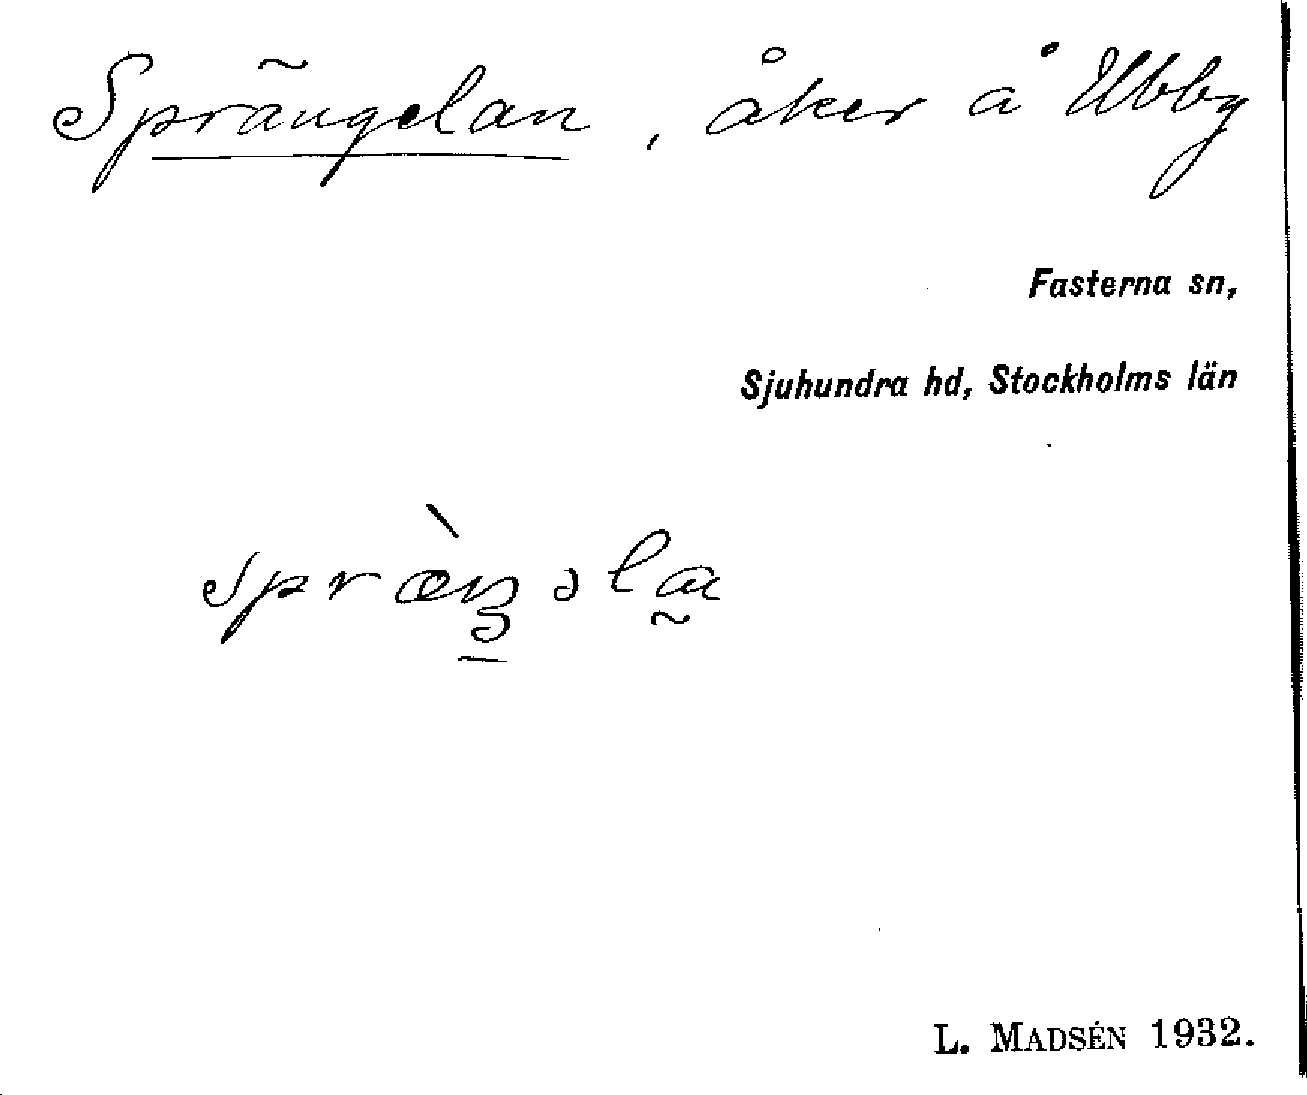 Sprängelan, åker å Ubby
Fasterna sn,
Sjuhundra hd, Stockholms län
L. MADSÉN 1932.